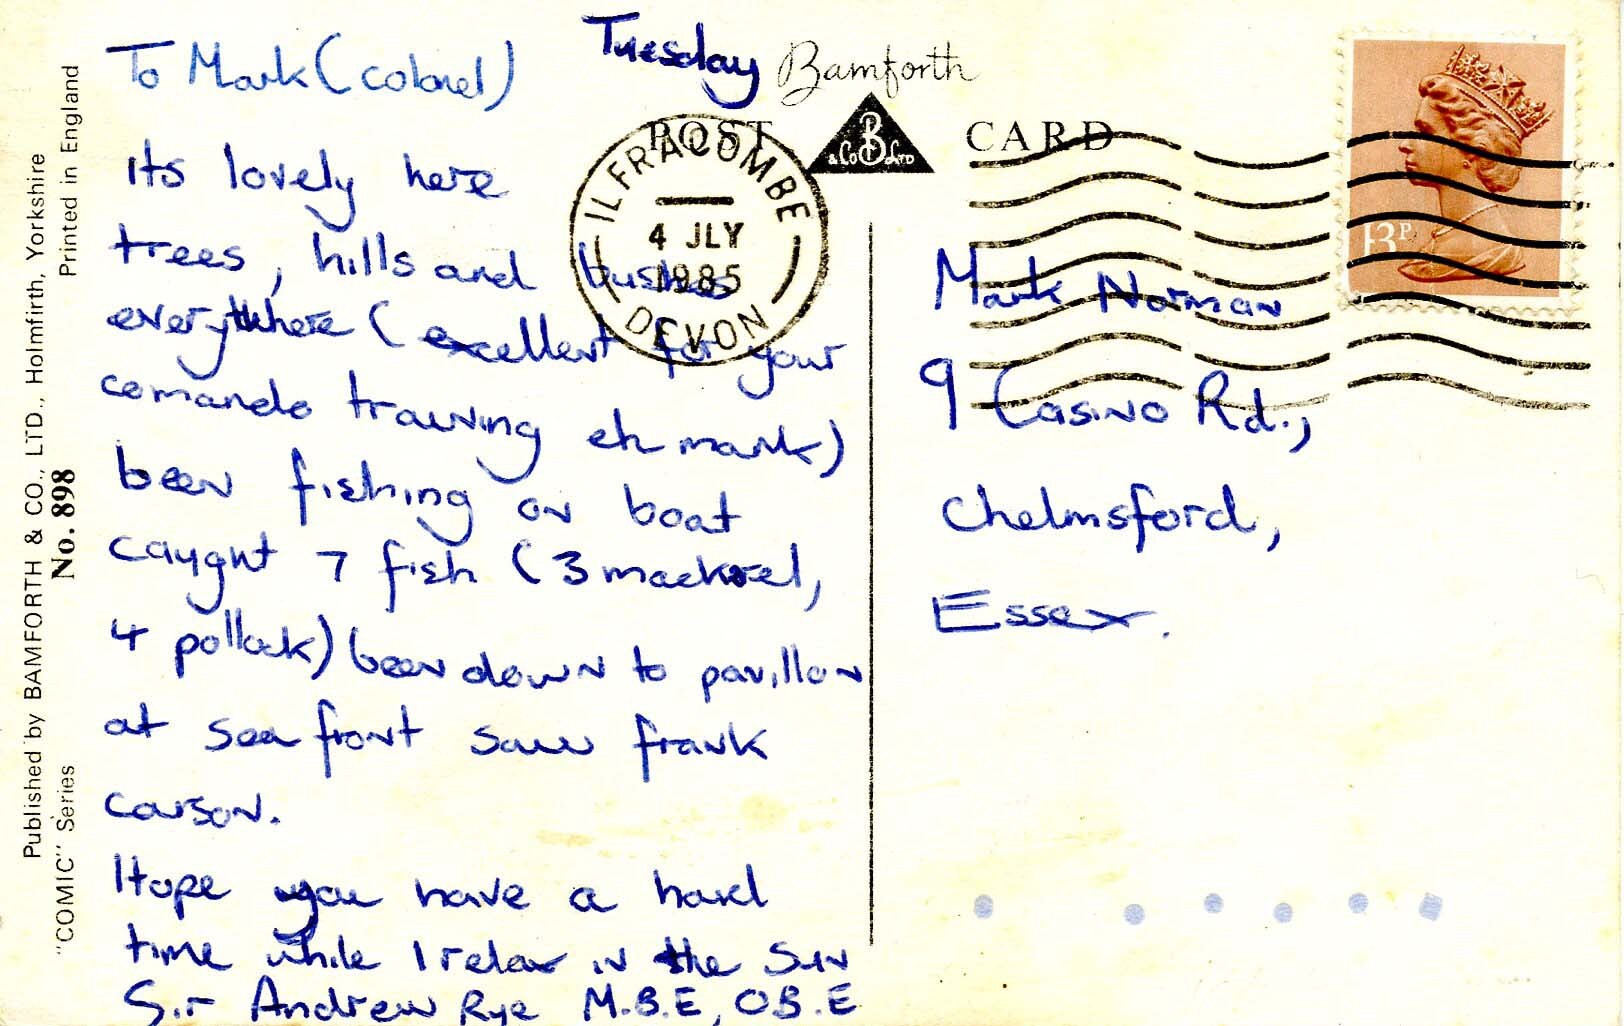 Tuesday
To Mark (colonel)
its lovely here
trees, hills and bushes
everywhere (excellent for your
comando training eh mark)
been fishing on boat
caught 7 fish (3 mackerel,
4 pollack) been down to pavillon
at sea front saw frank
carson.
Hope you have a hard
time while I relax in the sun
Sir Andrew Rye M.B.E, O.B.E
Bamforth
POST CARD
B
& Co LTD
ILFRACOMBE
4 JLY
1985
DEVON
13P
Mark Norman
9 Casino Rd.,
Chelmsford,
Essex.
Published by BAMFORTH & CO., LTD., Holmfirth, Yorkshire
No. 898
"COMIC" Series
Printed in England